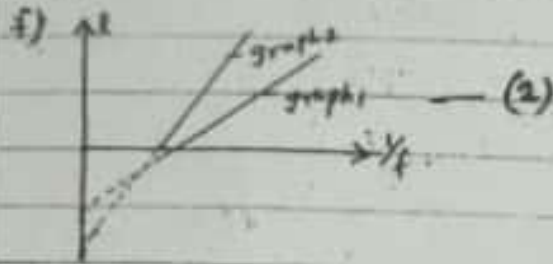 f) l
graph2
graph1 — (2)
1/f